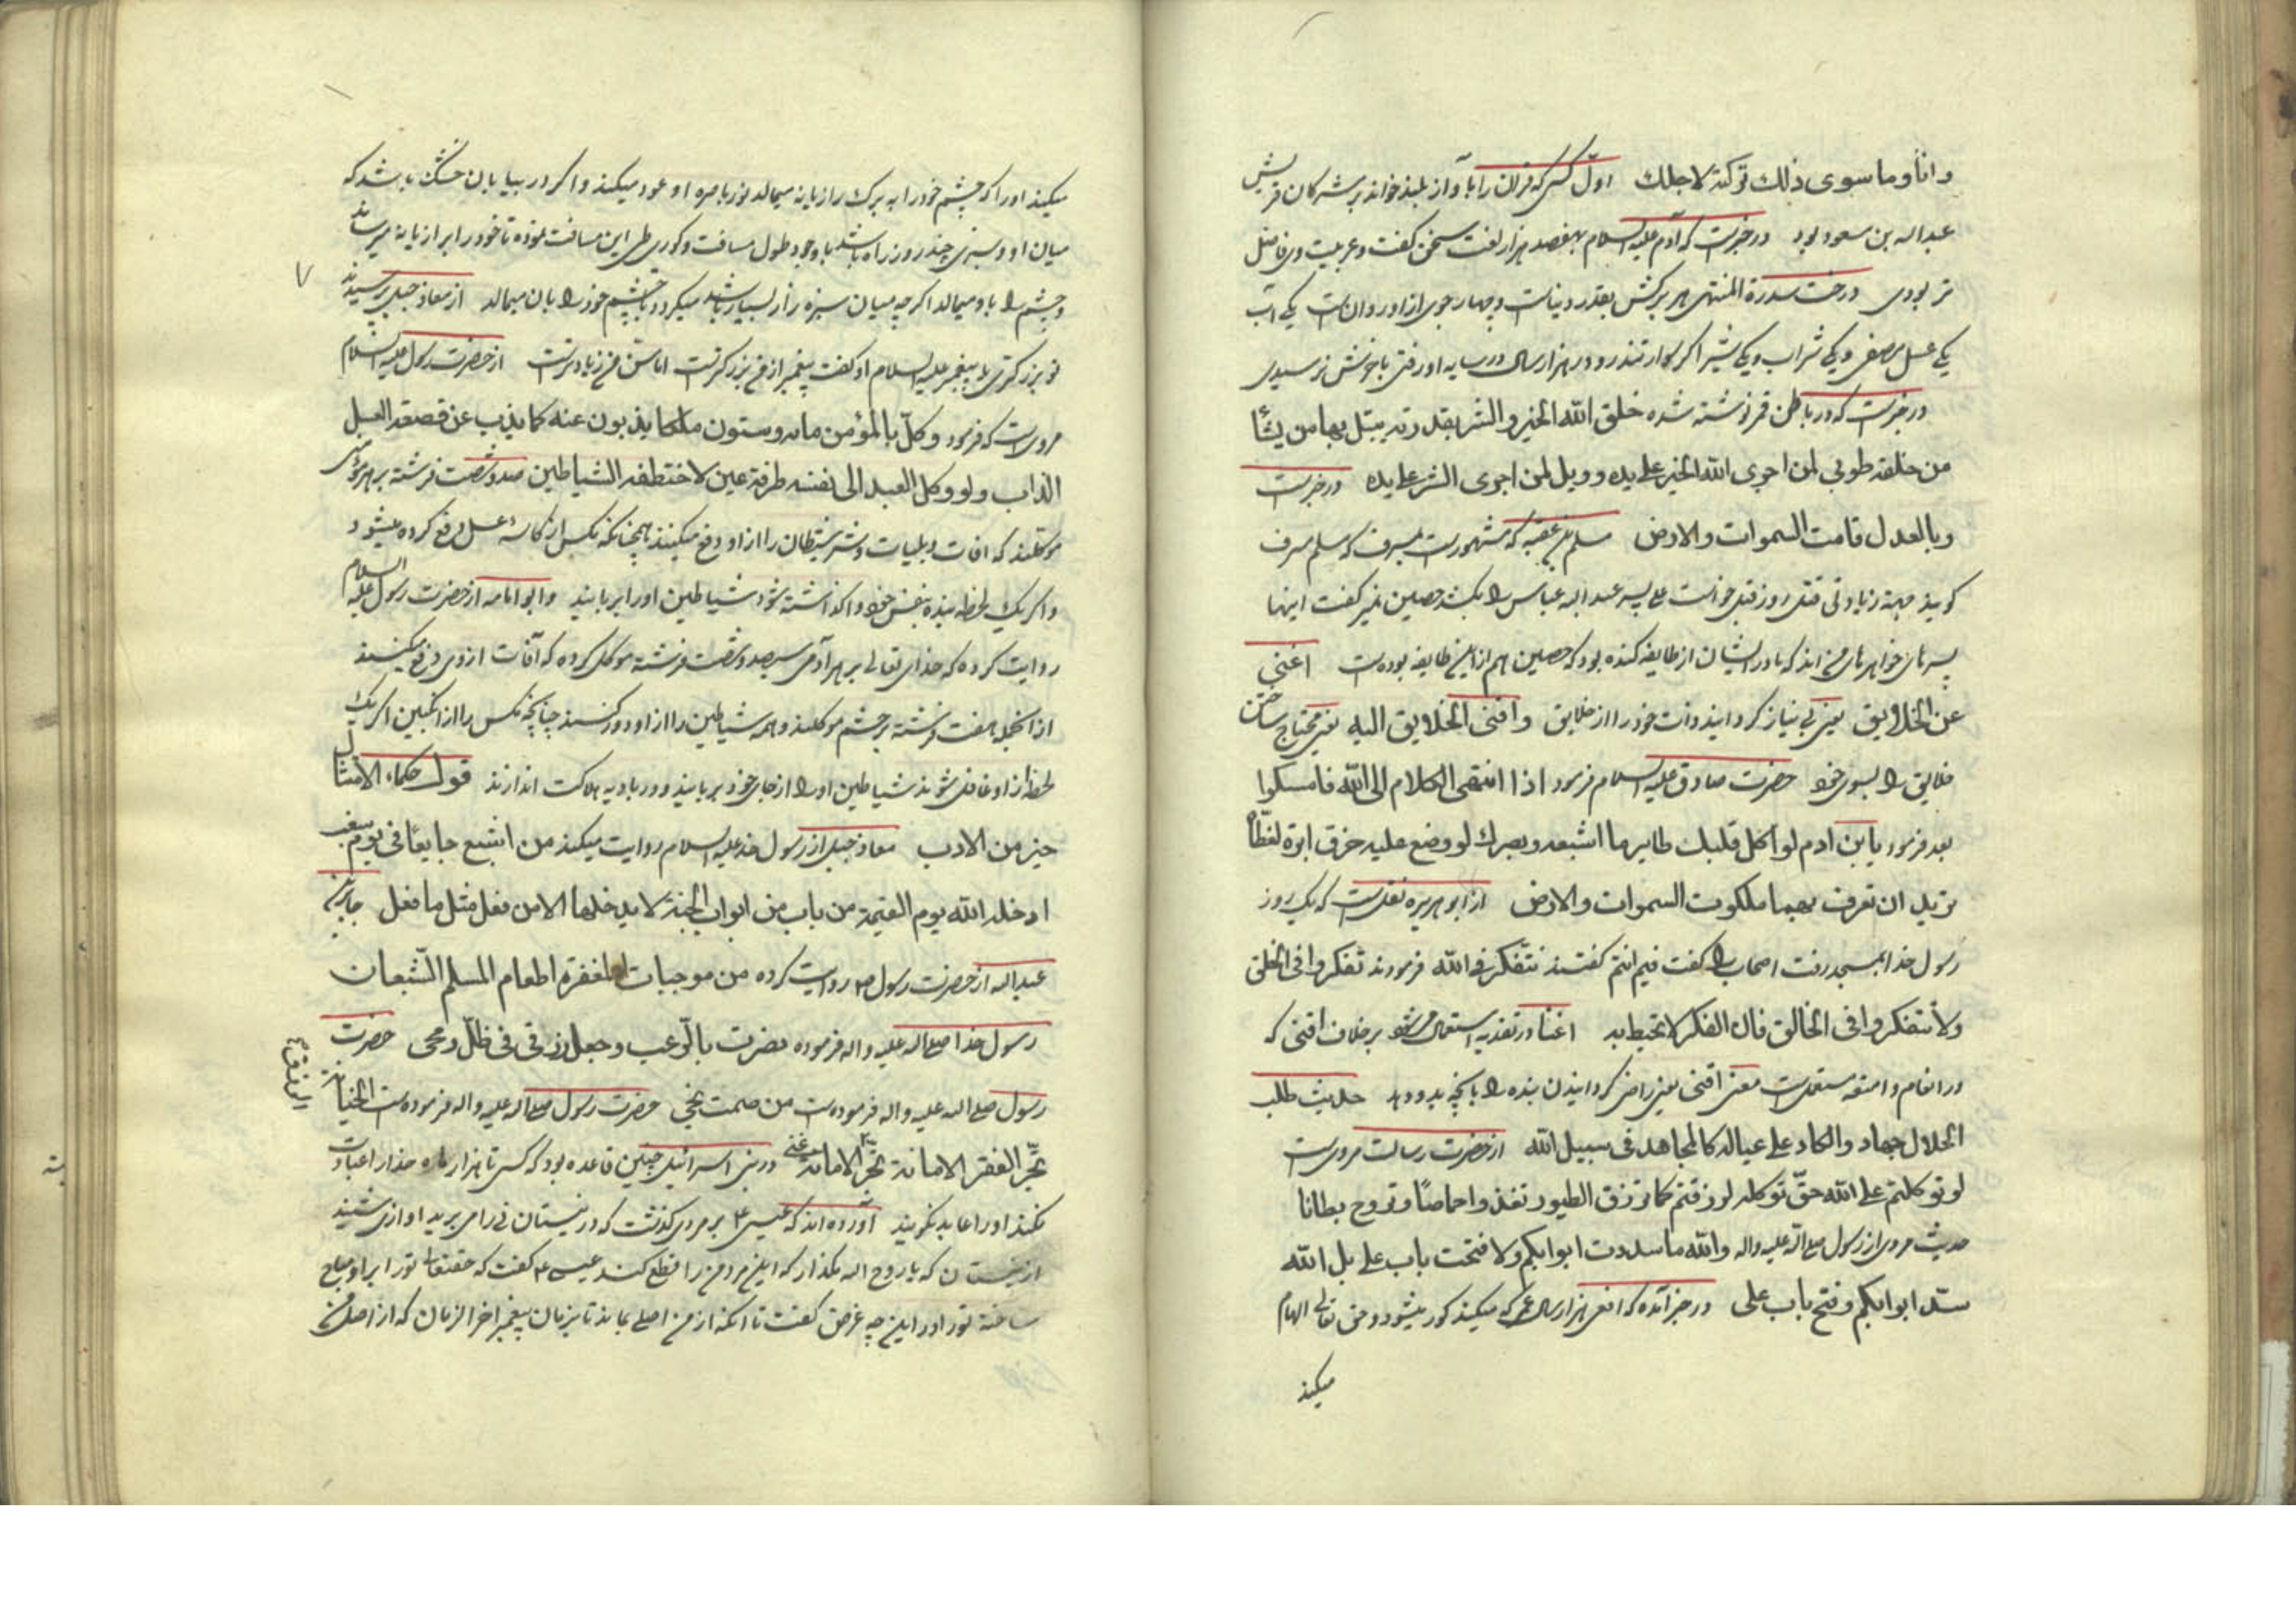 وانا وما سوی ذلك تركته لاجلك اول کسی که قرآن را با آواز بلند خواند بر مشرکان قریش
عبد الله بن مسعود بود در خبرست که آدم علیه السلام بهفصد هزار لغت سخن گفت و عربیت وی فاضل
تر بودی درخت سدرة المنتهی هر برگش بقدر دنیاست و چهار جوی از او روانست یکی آب
یکی عسل مصفی و یکی شراب و یکی شیر اگر سوار تندرو در هزار سال در سایه او رفتی باخرش نرسیدی
در خبرست که در باطن قمر نوشته شده خلق الله الخیر والشر بقدرته یبتلی بهما من یشأ
من خلقه طوبی لمن اجری الله الخیر علی یده و ویل لمن اجری الشر علی یده در خبرست
وبالعدل قامت السموات والارض مسلم بن عقبه که مشهورست بمسرف که مسلم مسرف
گویند جهة زیادتی قتل روز قتل خواست علی پسر عبد الله عباس را بکشد حصین نمیر گفت اینها
پسرهای خواهرهای من اند که مادر ایشان از طایفه کنده بود که حصین هم از این طایفه بوده است اغنی
عن الخلایق یعنی بی نیاز گردانید ذات خود را از خلایق واقنی الخلایق الیه یعنی محتاج ساختن
خلایق را بسوی خود حضرت صادق علیه السلام فرمود اذا انتهی الكلام الی الله فامسکوا
بعد فرمود یابن ادم لو اکل قلبك طایر ما اشبعه وبصرك لو وضع علیه خرق ابرة لغطّاه
ترید ان تعرف بهما ملکوت السموات والارض از ابو هریره نقلست که یک روز
رسول خدا بمسجد رفت اصحاب را گفت فیم انتم گفتند نتفکر فی الله فرمودند تفکروا فی الخلق
ولا تتفکروا فی الخالق فان الفکر لا یحیط به اغنا در تغذیه استعمال میشود بر خلاف اقنی که
در انعام و امتعه مستعملست معنی اقنی یعنی راضی گردانیدن بنده را بآنچه بدو دهد حدیث طلب
الحلال جهاد والکاد علی عیاله کالمجاهد فی سبیل الله از حضرت رسالت مرویست
لو توکلتم علی الله حقّ توکله لرزقتم کما ترزق الطیور تغذوا خماصًا وتروح بطانا
حدیث مروی از رسول صلی الله علیه واله والله ما سددت ابوابکم ولا فتحت باب علی بل الله
سدّ ابوابکم وفتح باب علی در خبر آمده که افعی هزار سال عمر که میکند کور میشود و حق تعالی الهام
میکند
میکند اورا که چشم خود را به برك رازیانه میمالد نور باصره او عود میکند و اگر در بیابان خشك باشد که
میان او و سبزی چند روز راه باشد با وجود طول مسافت و کوری طی این مسافت نموده تا خود را برازیانه میرساند
و چشم را باو میمالد اگر چه میان سبزه زار بسیار باشد میگردد تا چشم خود را بان میمالد از معاذ جبل پرسیدند
تو بزرگتری یا پیغمبر علیه السلام او گفت پیغمبر از من بزرگترست اما سن من زیادترست از حضرت رسول علیه السلام
مرویست که فرمود وکلّ بالمؤمن مائه وستون ملکا یذبون عنه کما یذب عن قصعة العسل
الذباب ولو وکل العبد الی نفسه طرفة عین لاختطفه الشیاطین صد و شصت فرشته بر هر مؤمنی
موکلند که افات و بلیات و شر شیطان را از او دفع میکنند همچنانکه مگس از کاسهٔ عسل دفع کرده میشود
و اگر یك لحظه بنده بنفس خود واگذاشته شود شیاطین اورا بربایند وابو امامه از حضرت رسول علیه السلام
روایت کرده که خدای تعالی بر هر آدمی سیصد و شصت فرشته موکل کرده که آفات از وی دفع میکنند
از آنجمله هفت فرشته بر چشم موکلند و همه شیاطین را از او دور کنند چنانچه مگس را از انگبین اگر یك
لحظه از او غافل شوند شیاطین اورا از جای خود بربایند و در بادیه هلاکت اندازند قول حکماء الامتثال
خیر من الادب معاذ جبل از رسول خدا علیه السلام روایت میکند من اشبع جایعًا فی یوم سغب
ادخله الله یوم القیمة من باب من ابواب الجنة لا یدخلها الا من فعل مثل ما فعل جابر بن
عبد الله از حضرت رسول ص روایت کرده من موجبات المغفرة اطعام المسلم الشّبعان
رسول خدا صلی الله علیه واله فرموده نصرت بالرّعب وجعل رزقی فی ظلّ رمحی حضرت
رسول صلی الله علیه واله فرموده است من صمت نجی حضرت رسول صلی الله علیه واله فرموده ست الخیانة
تجرّ الفقر الامانة تجرّ الامانة غنی در بنی اسرائیل چنین قاعده بود که کسی تا هزار ماه خدا را عبادت
نکند اورا عابد نگویند آورده اند که عیسی ع بر مردی گذشت که در نیستان نی را می برید اوازی شنید
از نیستان که یا روح الله مگذار که این مرد من را قطع کند عیسی ع گفت که حقتعالی تورا بر او مباح
ساخته تورا در این چه غرض گفت تا آنکه از من اصلی بماند تا بزمان پیغمبر اخر الزمان که از اصل من